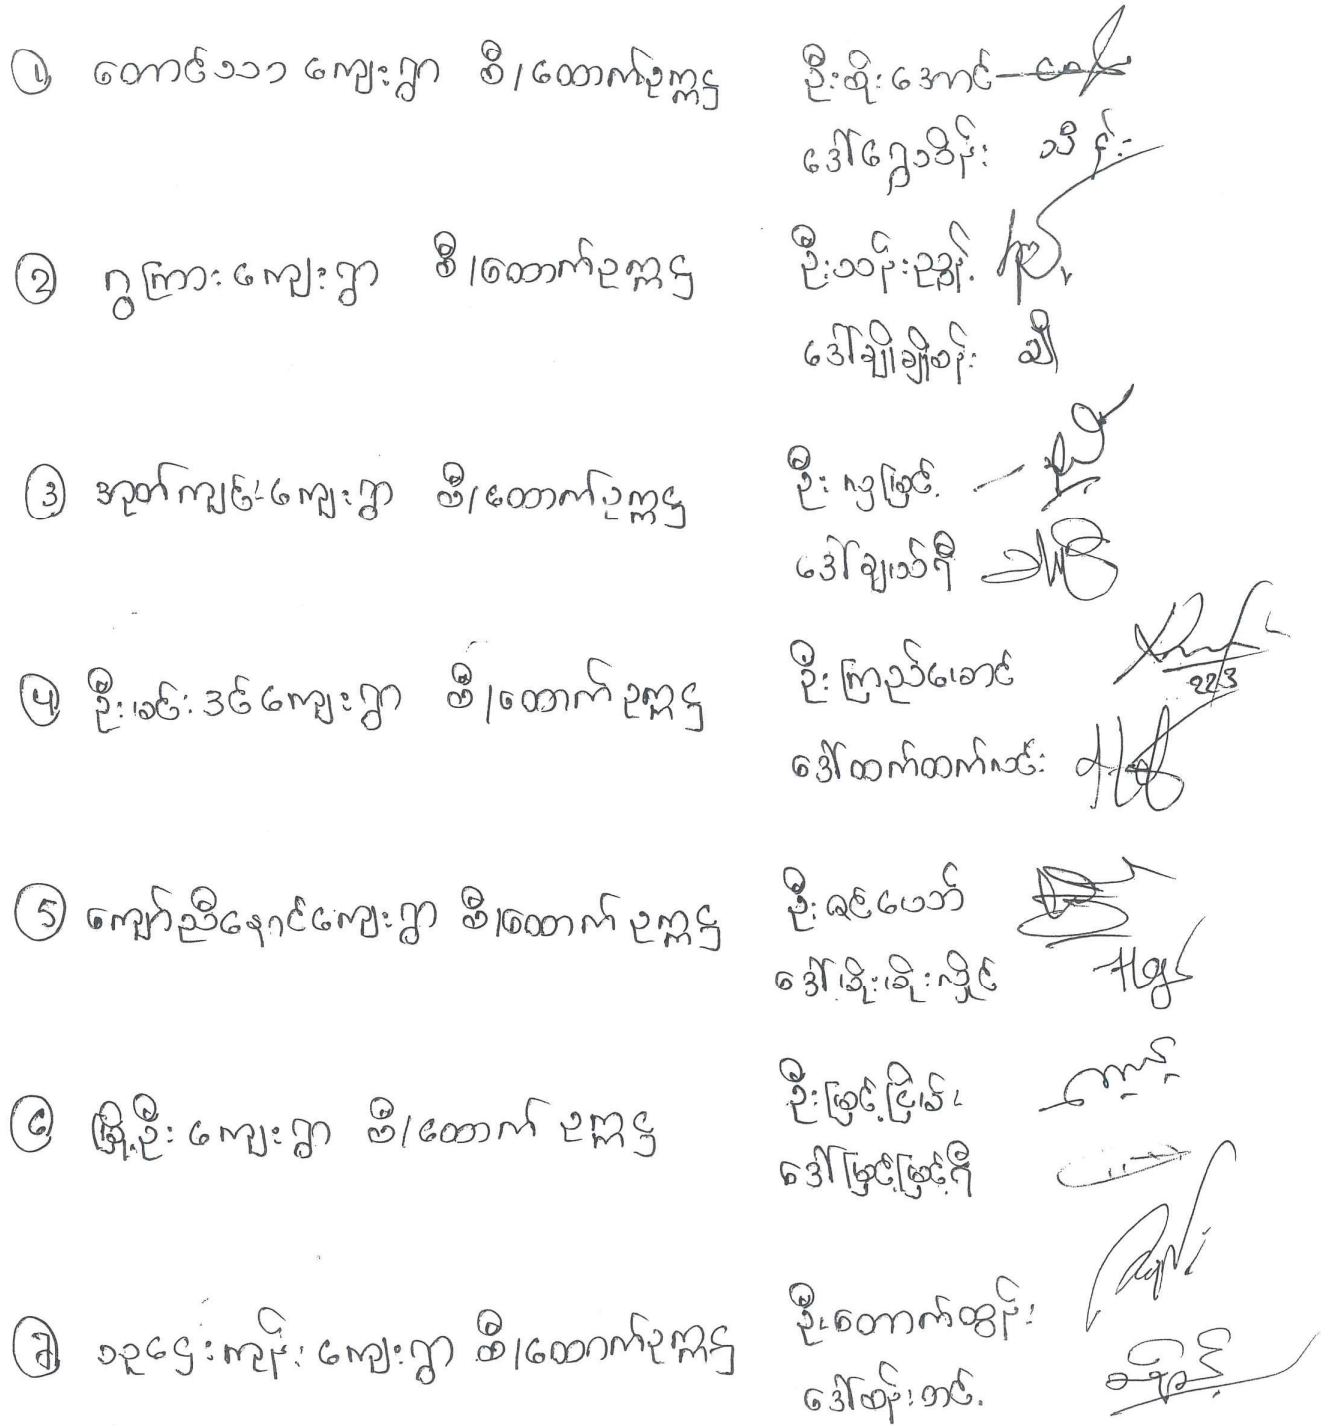 ① တောင်သာ ကျေးရွာ စီ/ထောက်ဥက္ကဋ္ဌ ဦးစိုးအောင်
ဒေါ်ရွှေသိန်း သိန်း
② ဂွကြားကျေးရွာ စီ/ထောက်ဥက္ကဋ္ဌ ဦးသန်းညွန့်
ဒေါ်ချိုချိုစန်း ချို
③ အုတ်ကျင်းကျေးရွာ စီ/ထောက်ဥက္ကဋ္ဌ ဦးလှမြင့်
ဒေါ်ချယ်ရီ
④ ဦးခင်းဒင်ကျေးရွာ စီ/ထောက်ဥက္ကဋ္ဌ ဦးကြည်အောင်
223
ဒေါ်ထက်ထက်လင်း
⑤ ကျော်ညီနောင်ကျေးရွာ စီ/ထောက်ဥက္ကဋ္ဌ
ဒေါ်စိုးစိုးလှိုင်
⑥ မြို့ဦးကျေးရွာ စီ/ထောက်ဥက္ကဋ္ဌ ဦးမြင့်ငြိမ်း
ဒေါ်မြင့်မြင့်ရီ
⑦ သူဌေးကုန်းကျေးရွာ စီ/ထောက်ဥက္ကဋ္ဌ ဦးတောက်ထွန်း
ဒေါ်စန်းတင်